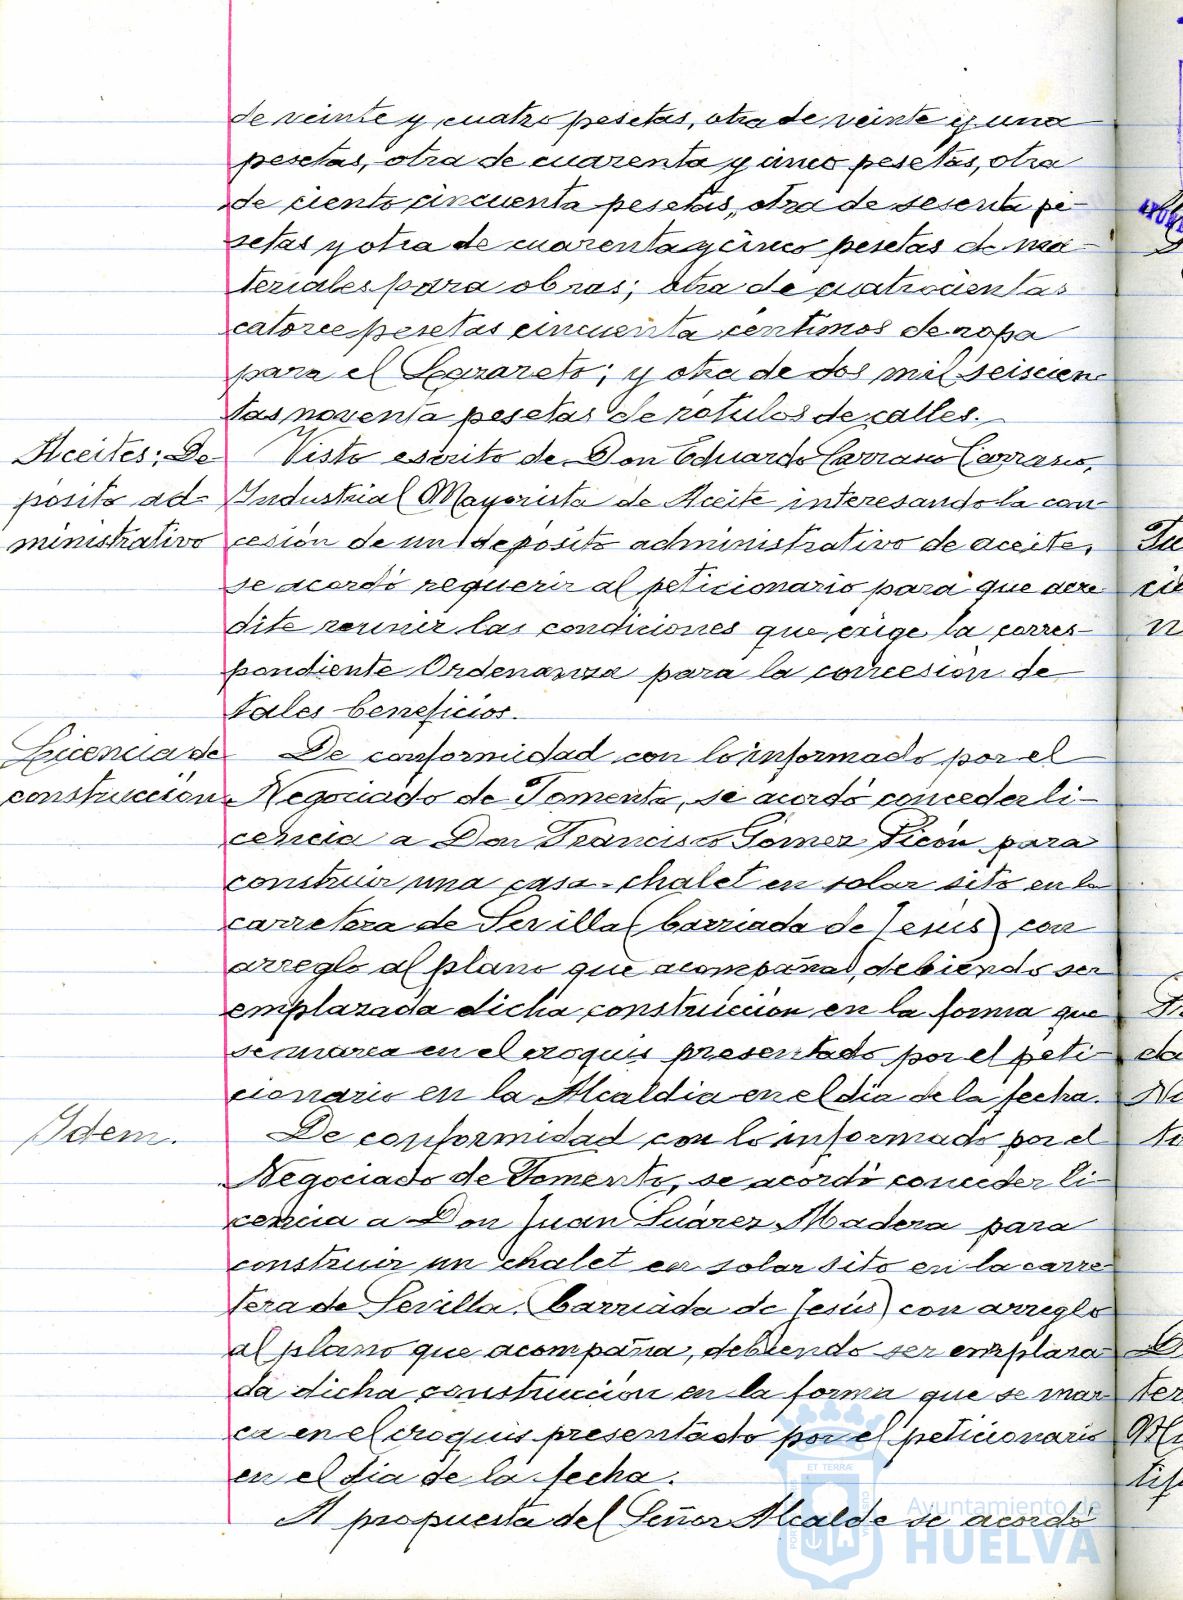 de veinte y cuatro pesetas, otra de veinte y una
pesetas, otra de cuarenta y cinco pesetas, otra
de ciento cincuenta pesetas, otra de sesenta pe-
setas y otra de cuarenta y cinco pesetas de ma-
teriales para obras; otra de cuatrocientas
catorce pesetas cincuenta centimos de ropa
para el Lazareto; y otra de dos mil seiscien-
tas noventa pesetas de rótulos de calles.
Aceites: De
pósito ad-
ministrativo
Visto escrito de Don Eduardo Carrasco Carrasco,
Industrial Mayorista de Aceite interesando la con-
cesión de un depósito administrativo de aceite,
se acordó requerir al peticionario para que acre-
dite reunir las condiciones que exige la corres-
pondiente Ordenanza para la concesión de
tales beneficios.
Licencia de
construcción
De conformidad con lo informado por el
Negociado de Fomento, se acordó conceder li-
cencia a Don Francisco Gómez Picón para
construir una casa-chalet en solar sito en la
carretera de Sevilla (barriada de Jesús) con
arreglo al plano que acompaña, debiendo ser
emplazada dicha construcción en la forma que
se marca en el croquis presentado por el peti-
cionario en la Alcaldia en el dia de la fecha.
Idem.
De conformidad con lo informado por el
Negociado de Fomento, se acordó conceder li-
cencia a Don Juan Suárez Madera para
construir un chalet en solar sito en la carre-
tera de Sevilla (barriada de Jesús) con arreglo
al plano que acompaña, debiendo ser emplaza-
da dicha construcción en la forma que se mar-
ca en el croquis presentado por el peticionario
en el dia de la fecha.
A propuesta del Señor Alcalde se acordó
Ayuntamiento de
HUELVA